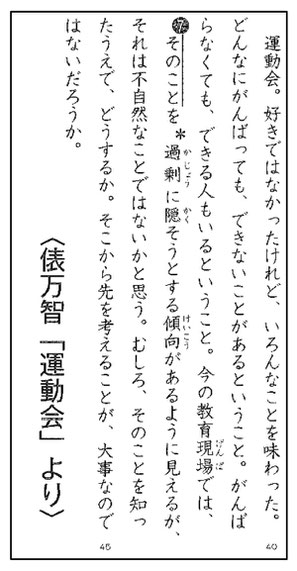 運動会。好きではなかったけれど、いろんなことを味わった。
どんなにがんばっても、できないことがあるということ。がんば
らなくても、できる人もいるということ。今の教育現場では、
そのことを*過剰に隠そうとする傾向があるように見えるが、
それは不自然なことではないかと思う。むしろ、そのことを知っ
たうえで、どうするか。そこから先を考えることが、大事なので
はないだろうか。
〈俵万智「運動会」より〉
げんば
かじょう
かく
けいこう
40
45